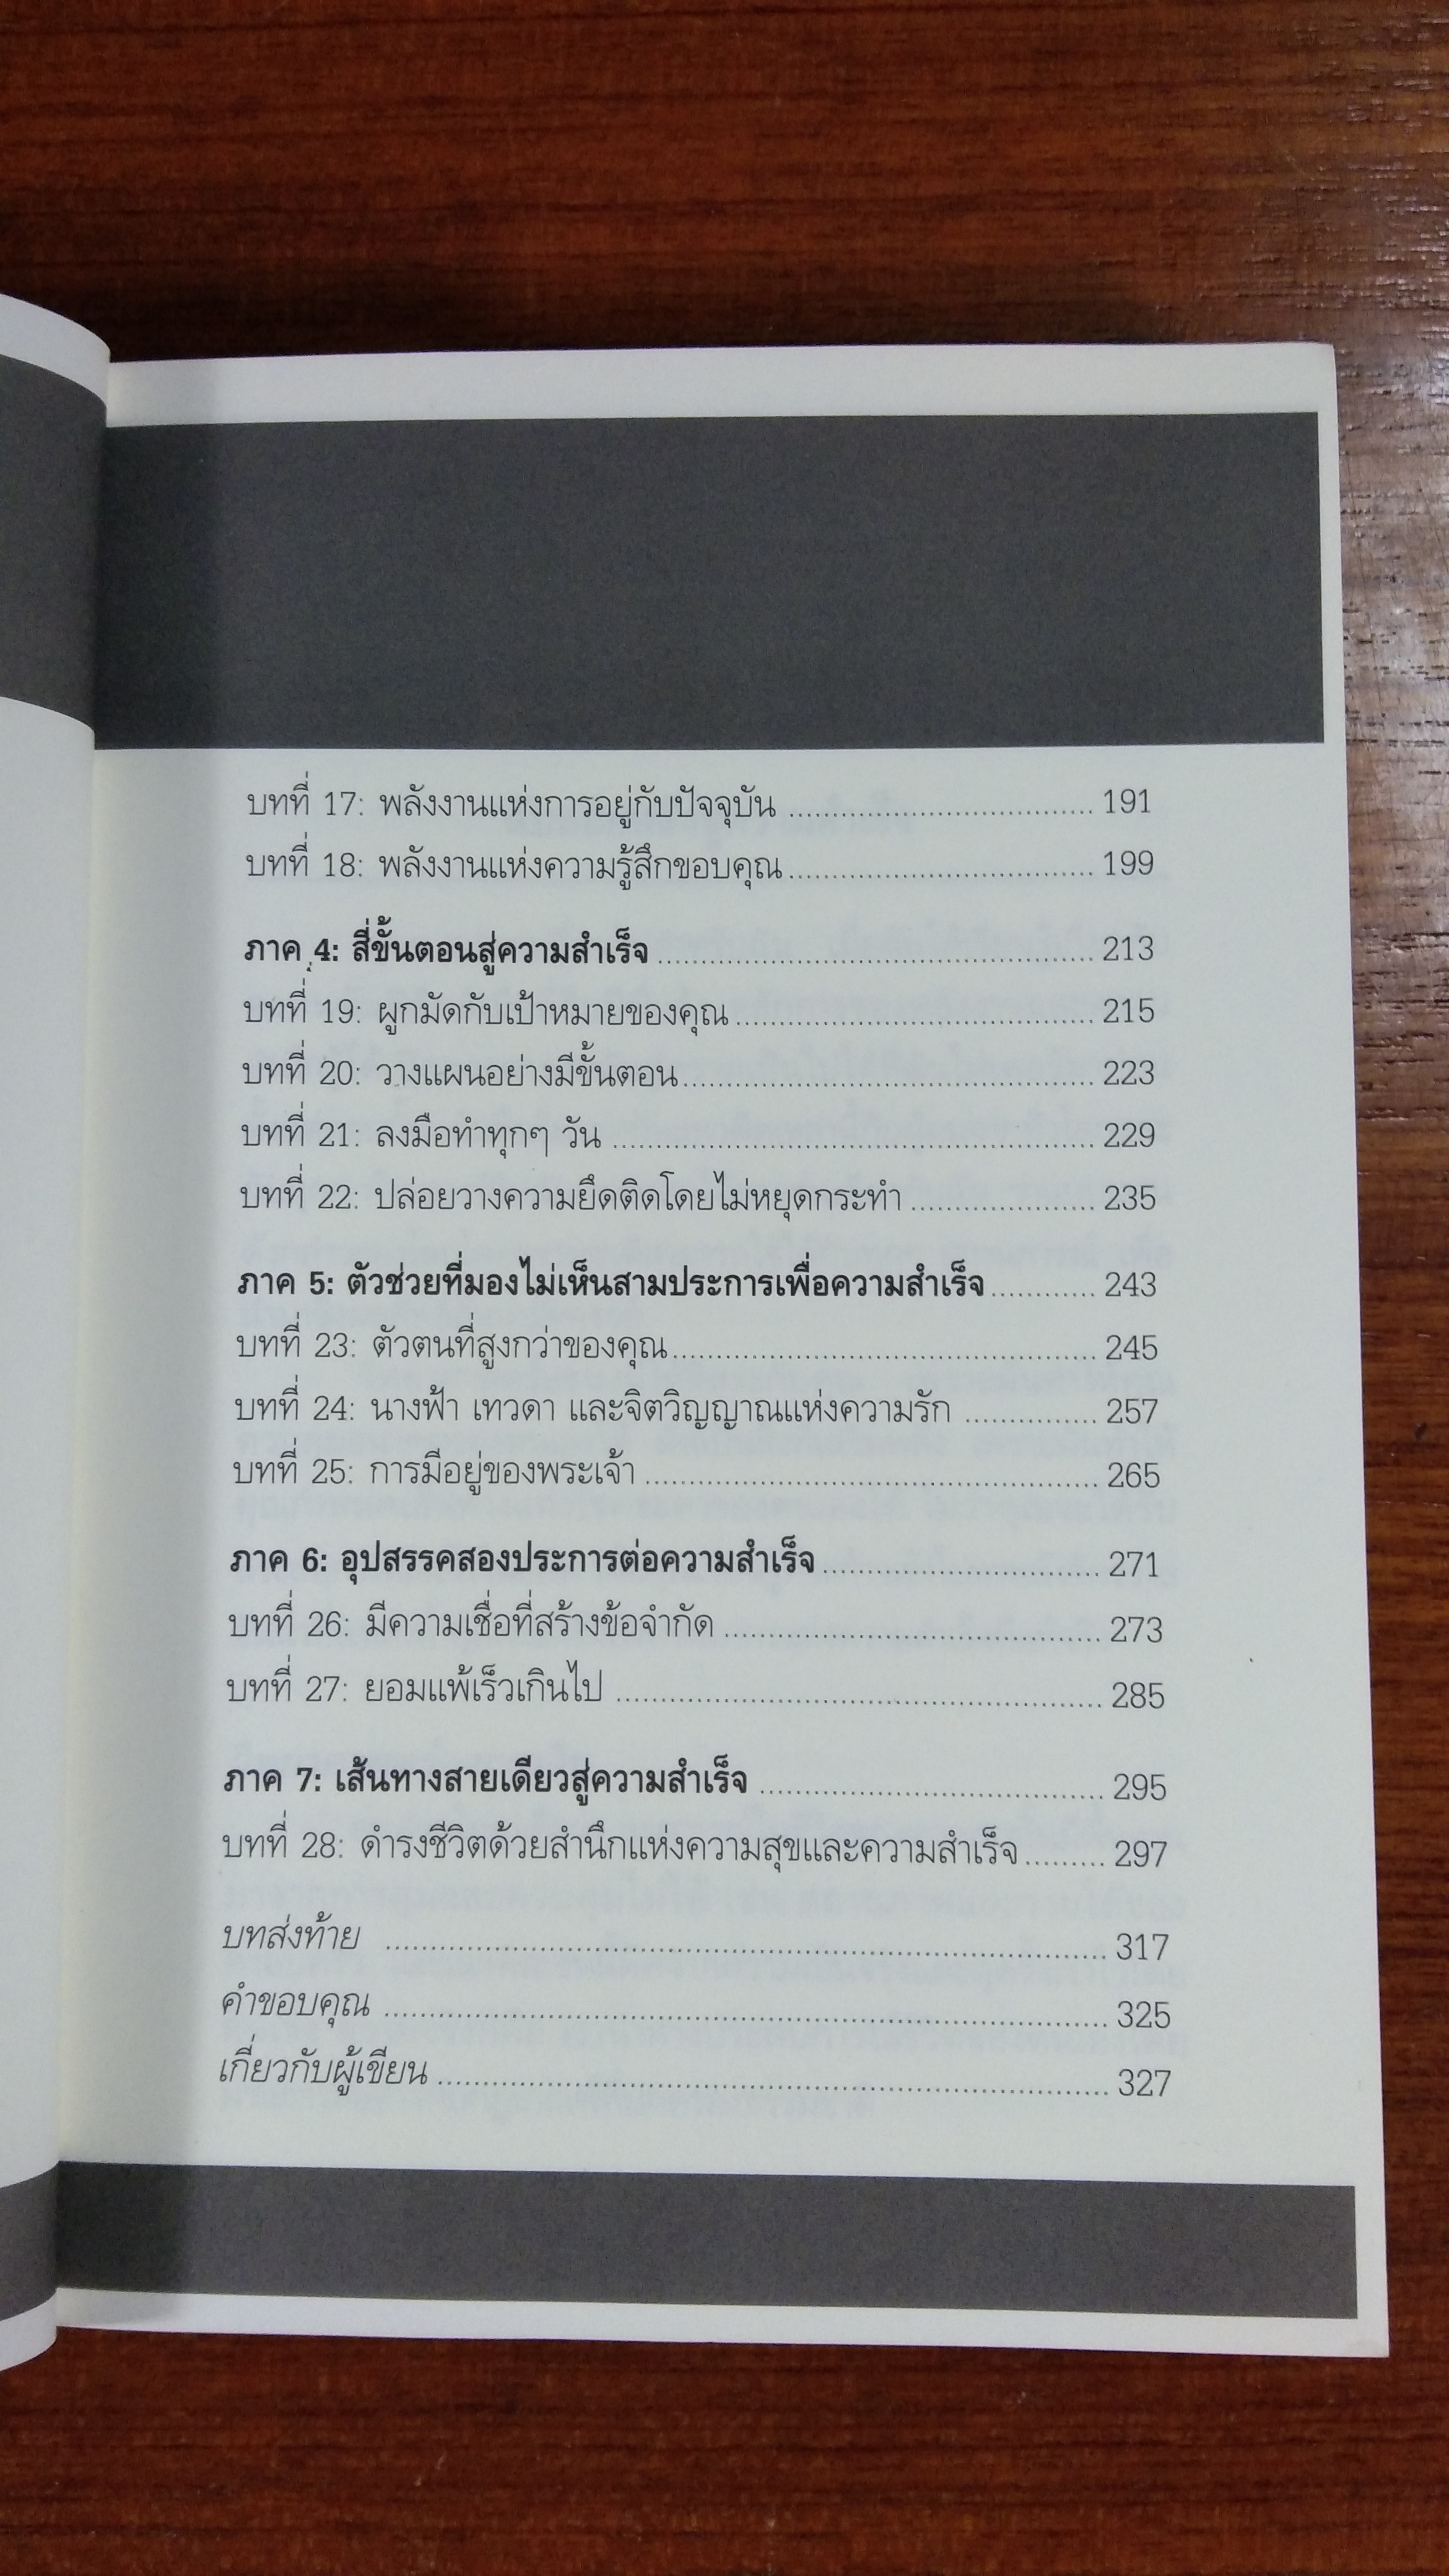 บทที่ 17: พลังงานแห่งการอยู่กับปัจจุบัน ................................... 191
บทที่ 18: พลังงานแห่งความรู้สึกขอบคุณ ................................... 199
ภาค 4: สี่ขั้นตอนสู่ความสำเร็จ .................................................. 213
บทที่ 19: ผูกมัดกับเป้าหมายของคุณ ......................................... 215
บทที่ 20: วางแผนอย่างมีขั้นตอน ............................................... 223
บทที่ 21: ลงมือทำทุกๆ วัน ....................................................... 229
บทที่ 22: ปล่อยวางความยึดติดโดยไม่หยุดกระทำ ..................... 235
ภาค 5: ตัวช่วยที่มองไม่เห็นสามประการเพื่อความสำเร็จ ............ 243
บทที่ 23: ตัวตนที่สูงกว่าของคุณ ................................................ 245
บทที่ 24: นางฟ้า เทวดา และจิตวิญญาณแห่งความรัก ............... 257
บทที่ 25: การมีอยู่ของพระเจ้า ................................................... 265
ภาค 6: อุปสรรคสองประการต่อความสำเร็จ ............................... 271
บทที่ 26: มีความเชื่อที่สร้างข้อจำกัด ......................................... 273
บทที่ 27: ยอมแพ้เร็วเกินไป ...................................................... 285
ภาค 7: เส้นทางสายเดียวสู่ความสำเร็จ ...................................... 295
บทที่ 28: ดำรงชีวิตด้วยสำนึกแห่งความสุขและความสำเร็จ ......... 297
บทส่งท้าย ................................................................................. 317
คำขอบคุณ ................................................................................ 325
เกี่ยวกับผู้เขียน .......................................................................... 327